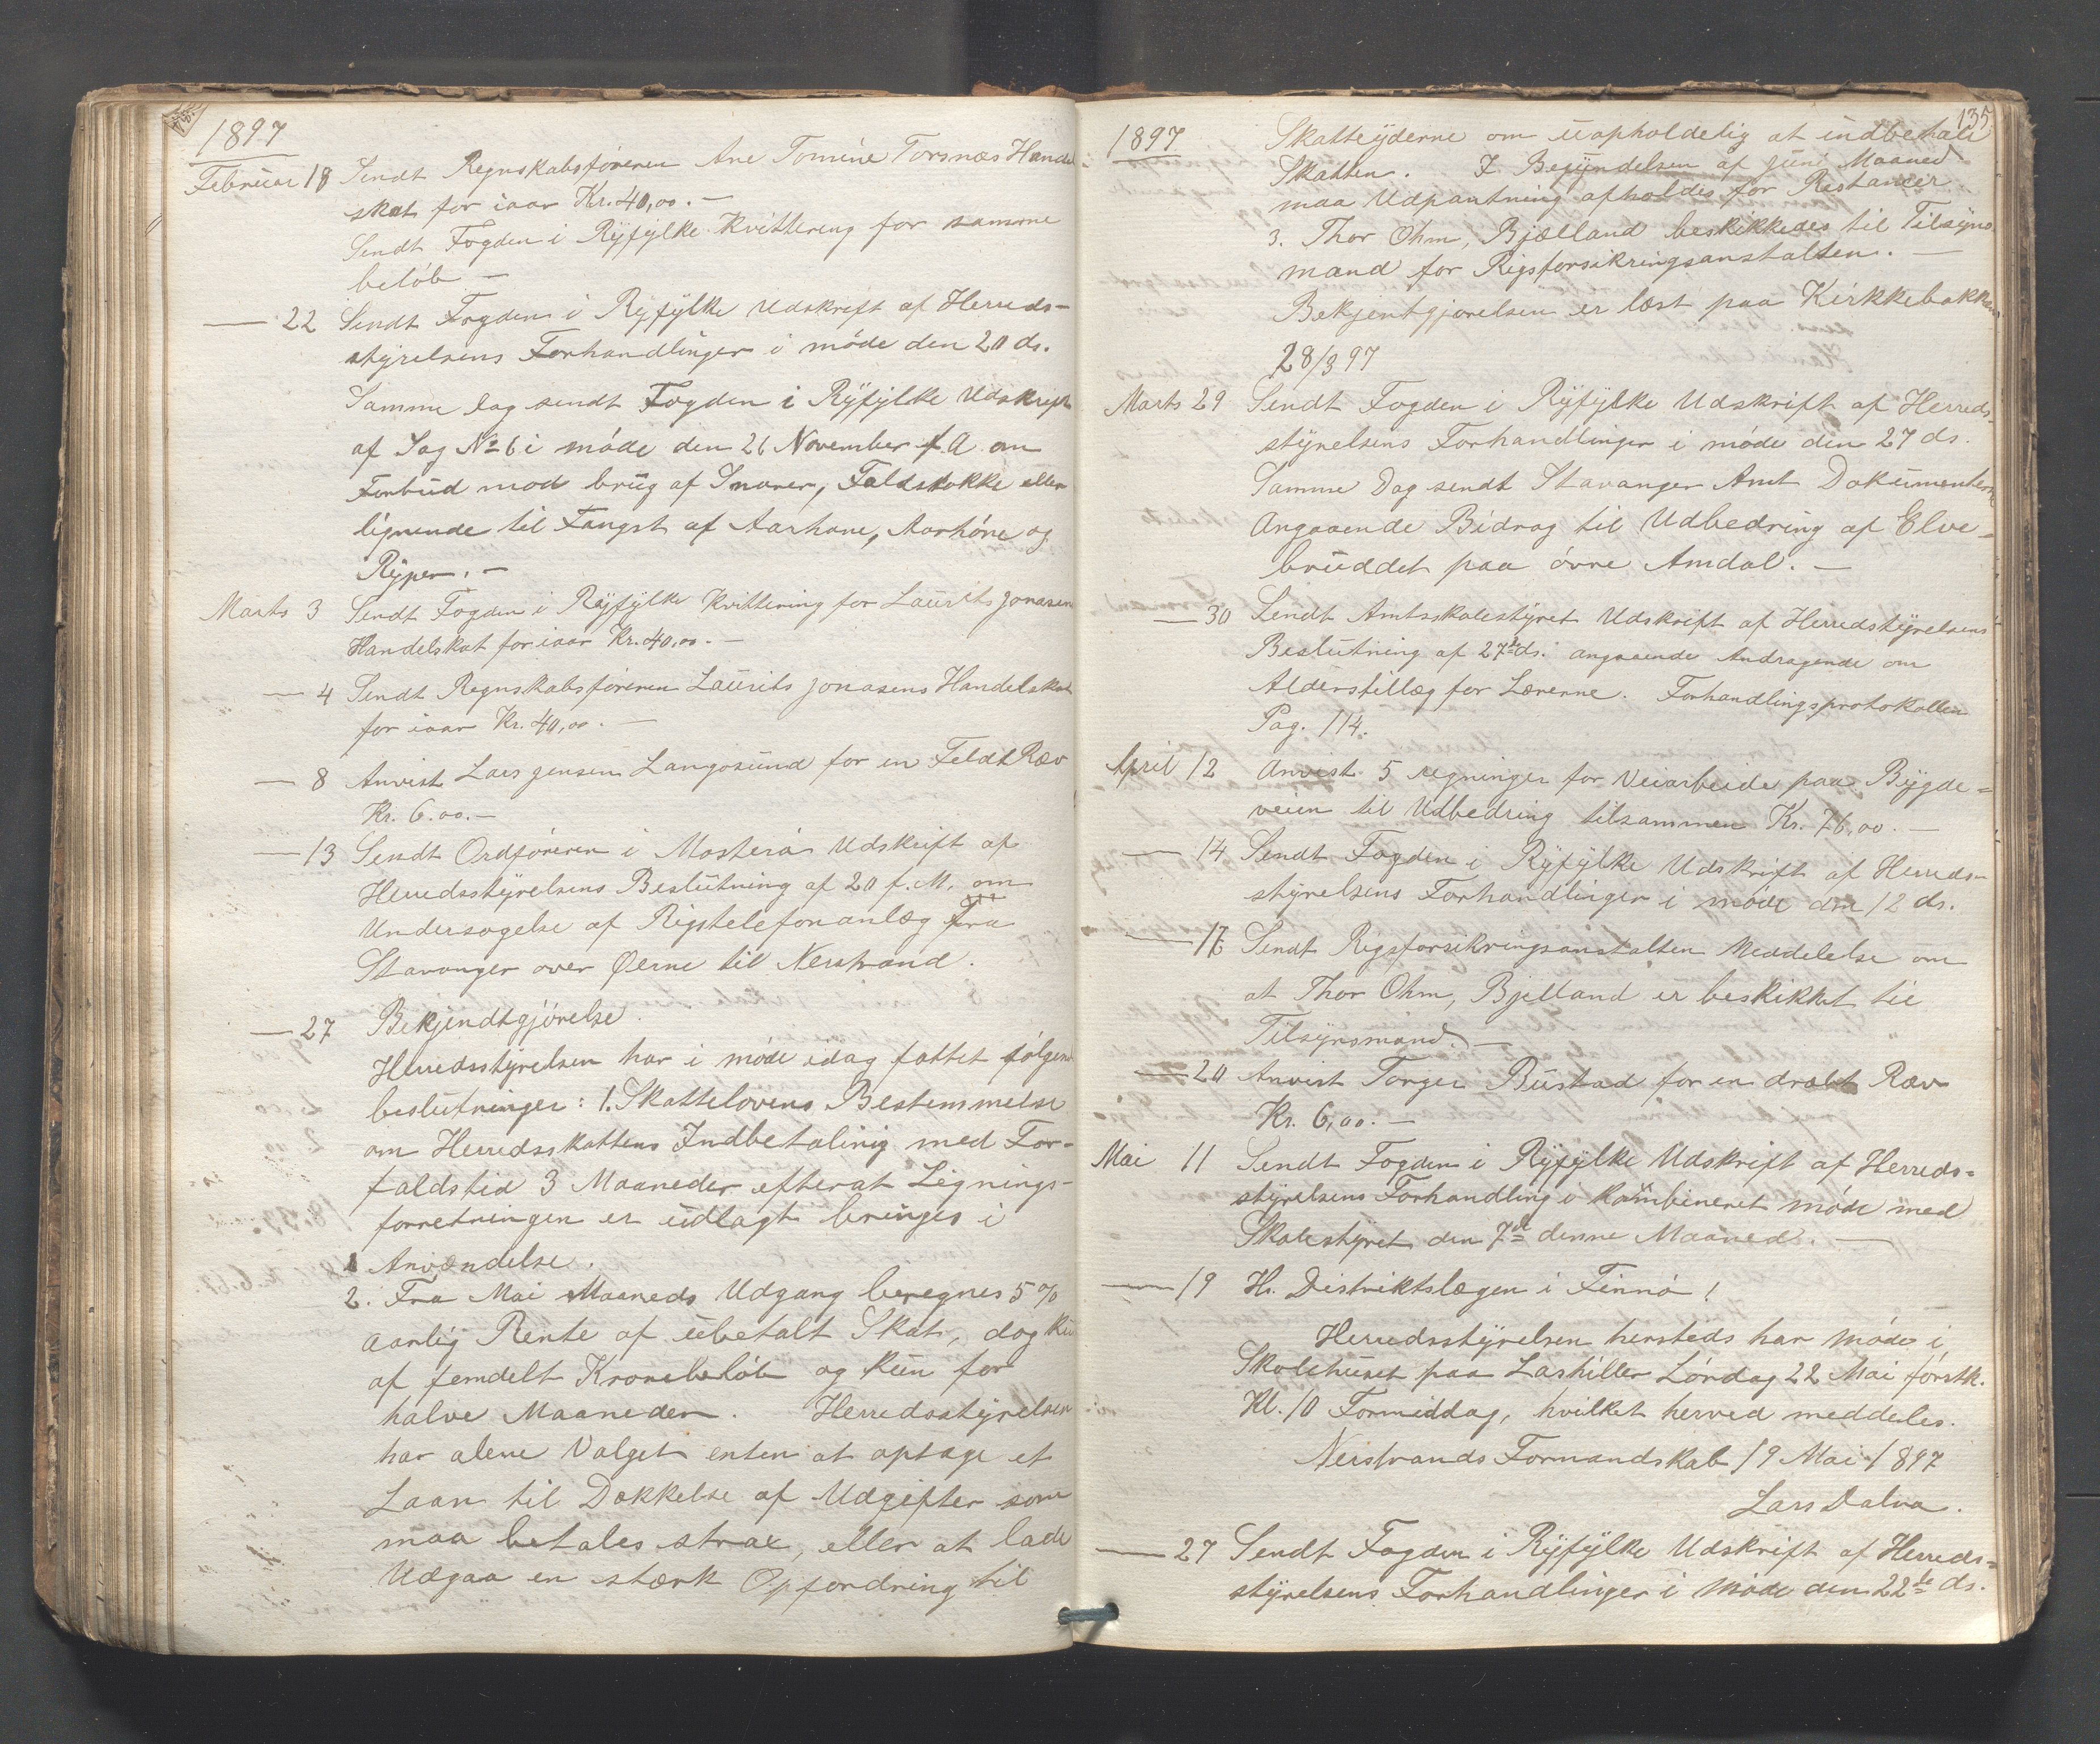 1897
Februar 18 Sendt Regnskabsföreren Ane Tomine Torsnæs Handel
skat for iaar Kr. 40,00. —
Sendt Fogden i Ryfylke Kvittering for samme
beløb —
— 22 Sendt Fogden i Ryfylke Udskrift af Herreds-
styrelsens Forhandlinger i møde den 20 ds.
Samme dag sendt Fogden i Ryfylke Udskrift
af Sag No 6 i møde den 26 November f. A om
Forbud mod brug af Snarer, Faldstokke eller
lignende til Fangst af Aarhane, Aarhöne og
Ryper. —
Marts 3 Sendt Fogden i Ryfylke Kvittering for Laurits Jonasen
Handelskat for iaar Kr. 40,00. —
— 4 Sendt Regnskabsföreren Laurits Jonasens Handelskat
for iaar Kr. 40,00. —
— 8 Anvist Lars Jensen Langøsund for en Feldt Ræv
Kr. 6.00. —
— 13 Sendt Ordföreren i Mosterö Udskrift af
Herredsstyrelsens Beslutning af 20 f. M. om
Undersøgelse af Rigstelefonanlæg fra
Stavanger over Øerne til Nerstrand.
— 27 Bekjendtgjörelse.
Herredsstyrelsen har i møde idag fattet følgend
beslutninger: 1. Skattelovens Bestemmelse
om Herredsskattens Indbetaling med For-
faldstid 3 Maaneder efterat Lignings-
forretningen er udlagt bringes i
Anvendelse.
2. Fra Mai Maaneds Udgang beregnes 5 %
aarlig Rente af ubetalt Skat, dog ku
af femdelt Kronebeløb og kun for
halve Maaneder. Herredsstyrelsen
har alene Valget enten at optage et
Laan til Dækkelse af Udgifter som
maa betales strax, eller at lade
Udgaa en stærk Opfordring til
135
1897 Skatteyderne om uopholdelig at indbetale
Skatten. I Begyndelsen af Juni Maaned
maa Udpantning afholdes for Restancer
3. Thor Ohm, Bjælland beskikkedes til Tilsyns
mand for Rigsforsikringsanstalten. —
Bekjentgjorelsen er læst paa Kirkkebakken
28/3 97
Marts 29 Sendt Fogden i Ryfylke Udskrift af Herreds-
styrelsens Forhandlinger i møde den 27 ds.
Samme Dag sendt Stavanger Amt Dokumenterne
Angaaende Bidrag til Udbedring af Elve-
bruddet paa øvre Amdal. —
— 30 Sendt Amtsskolestyret Udskrift af Herredstyrelsens
Beslutning af 27de ds. angaaende Andragende om
Alderstillæg for Lærerne. Forhandlingsprotokollen
Pag. 114.
April 12 Anvist 5 regninger for Veiarbeide paa Bygde-
veien til Udbedring tilsammen Kr. 76,00. —
— 14 Sendt Fogden i Ryfylke Udskrift af Herreds-
styrelsens Forhandlinger i møde den 12 ds.
— 17 Sendt Rigsforsikringsanstalten Meddelelse om
at Thor Ohm, Bjelland er beskikket til
Tilsynsmand. —
— 20 Anvist Torger Bustad for en dræbt Ræv
Kr. 6,00. —
Mai 11 Sendt Fogden i Ryfylke Udskrift af Herreds-
styrelsens Forhandling i kombineret møde med
Skolestyret den 7de denne Maaned. —
— 19 Hr. Distriktslægen i Finnö!
Herredsstyrelsen hersteds har Møde i
Skolehuset paa Lashiller Lördag 22 Mai förstk.
Kl. 10 Formiddag, hvilket herved meddeles.
Nerstrands Formandskab 19 Mai 1897
Lars Dalva.
— 27 Sendt Fogden i Ryfylke Udskrift af Herreds-
styrelsens Forhandlinger i Møde den 22de ds.